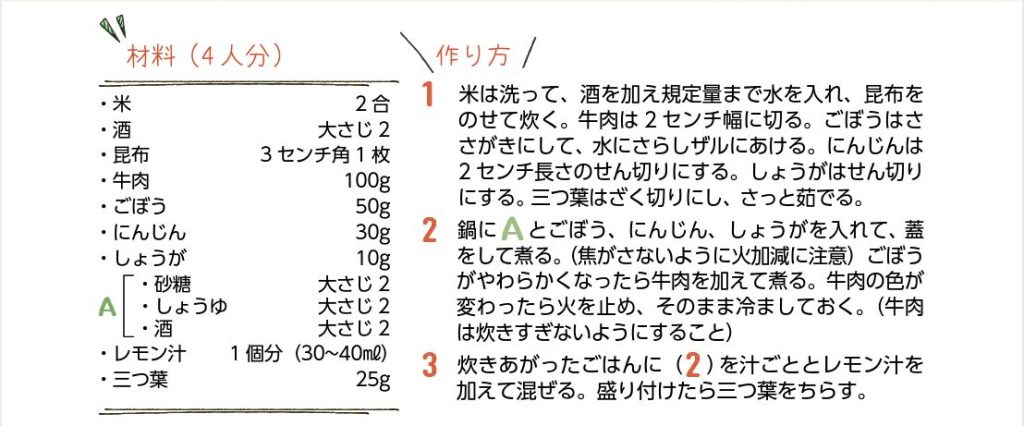 材料（4人分）
・米 2合
・酒 大さじ2
・昆布 3センチ角1枚
・牛肉 100g
・ごぼう 50g
・にんじん 30g
・しょうが 10g
A
・砂糖 大さじ2
・しょうゆ 大さじ2
・酒 大さじ2
・レモン汁 1個分（30~40㎖）
・三つ葉 25g
作り方
1 米は洗って、酒を加え規定量まで水を入れ、昆布を
のせて炊く。牛肉は2センチ幅に切る。ごぼうはさ
さがきにして、水にさらしザルにあける。にんじんは
2センチ長さのせん切りにする。しょうがはせん切り
にする。三つ葉はざく切りにし、さっと茹でる。
2 鍋にAとごぼう、にんじん、しょうがを入れて、蓋
をして煮る。（焦がさないように火加減に注意）ごぼう
がやわらかくなったら牛肉を加えて煮る。牛肉の色が
変わったら火を止め、そのまま冷ましておく。（牛肉
は炊きすぎないようにすること）
3 炊きあがったごはんに（2）を汁ごととレモン汁を
加えて混ぜる。盛り付けたら三つ葉をちらす。